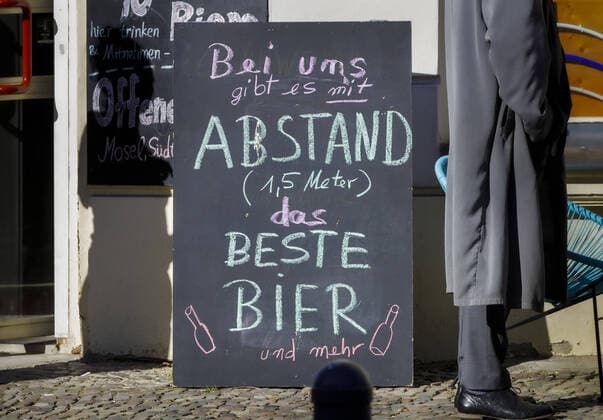 hier trinken
& Mitnehmen -
Bei uns
gibt es mit
ABSTAND
(1,5 Meter)
das
BESTE
BIER
und mehr